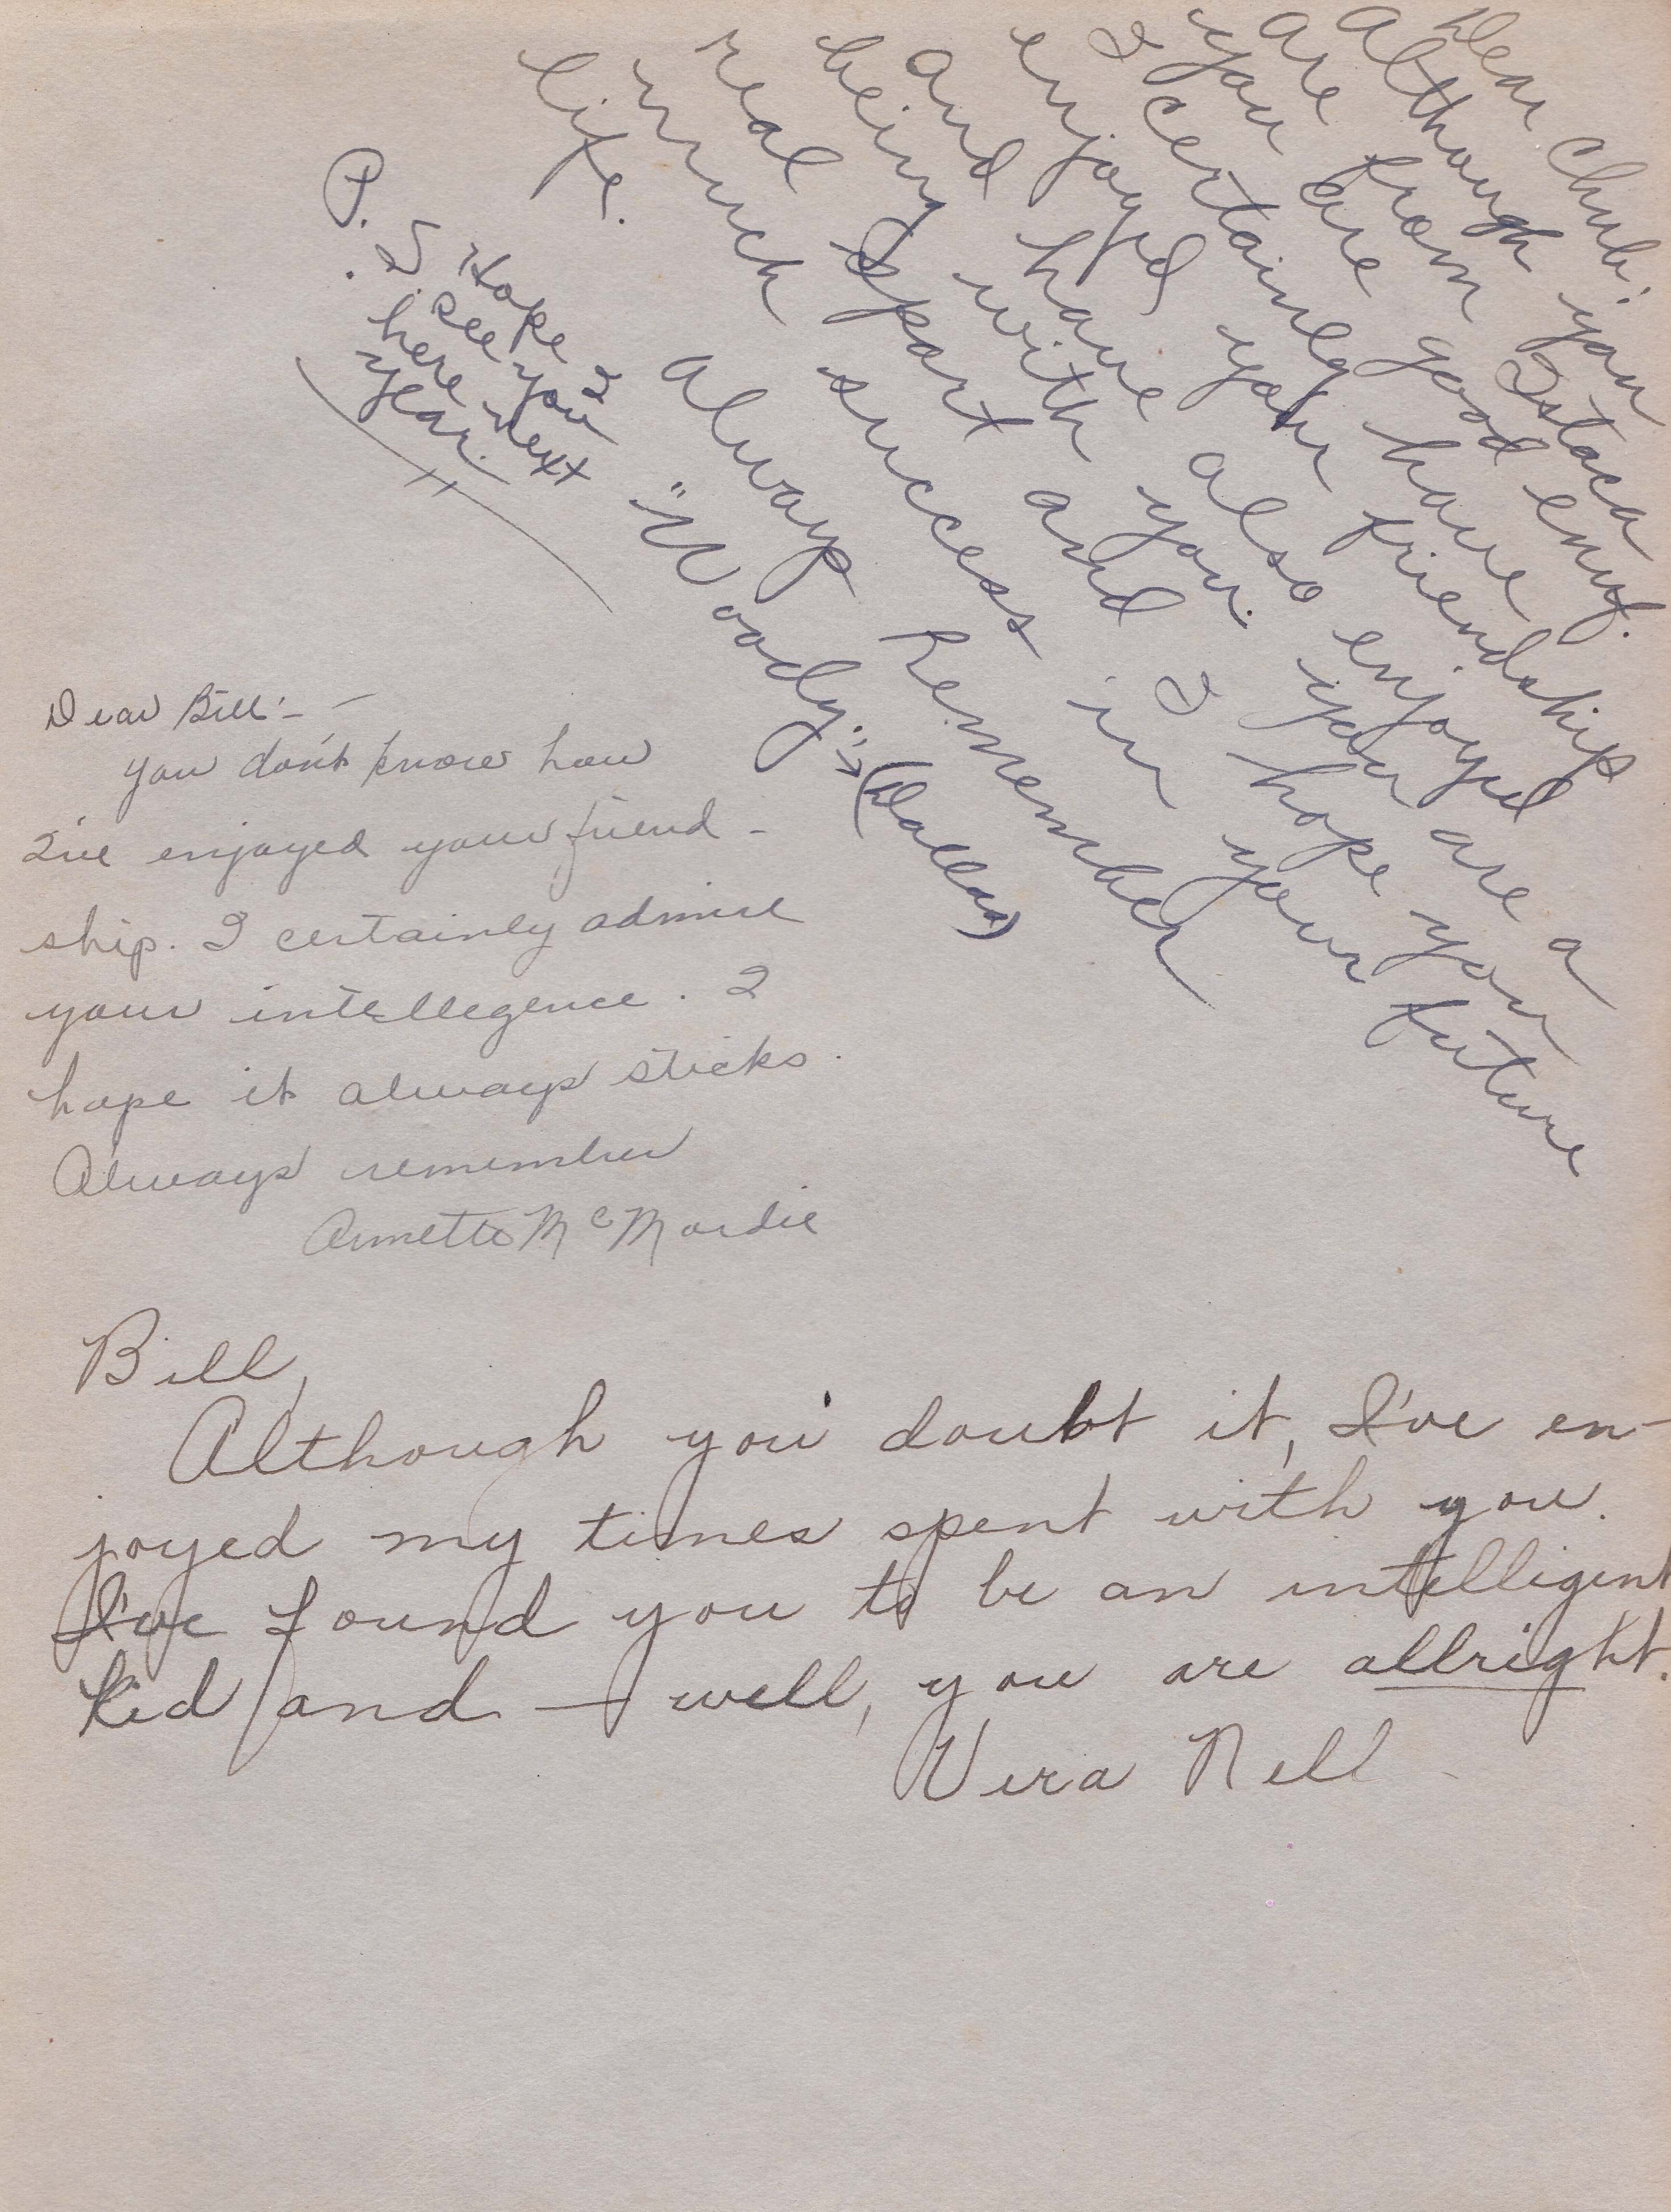 Dear Chub;
Although you
are from Istaca
you are good enuf.
I certainly have
enjoyed your friendship
and have also enjoyed
being with you. you are a
real sport and I hope you
much success in your future
life.
Always Remember
"Woody." → (Dallas)
P.S. Hope I
see you
here next
year.
Dear Bill:-
You don't know how
I've enjoyed your friend-
ship. I certainly admire
your intellegence. I
hope it always sticks.
Always remember
Annette McMordie
Bill,
Although you doubt it, I've en-
joyed my times spent with you.
I've found you to be an intelligent
kid and — well, you are allright.
Vera Nell